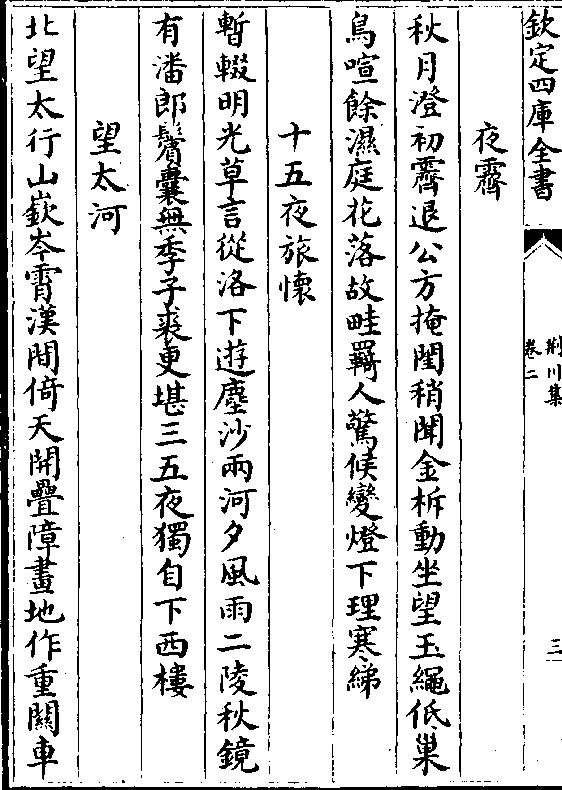 欽定四庫全書
荆川集
卷二
三
夜霽
秋月澄初霽退公方掩閨稍聞金柝動坐望玉繩低巢
鳥喧餘濕庭花落故畦羈人驚候變燈下理寒綈
十五夜旅懷
暫輟明光草言從洛下遊塵沙兩河夕風雨二陵秋鏡
有潘郎鬢囊無季子裘更堪三五夜獨自下西樓
望太河
北望太行山嶔岑霄漢間倚天開疊障畫地作重關車